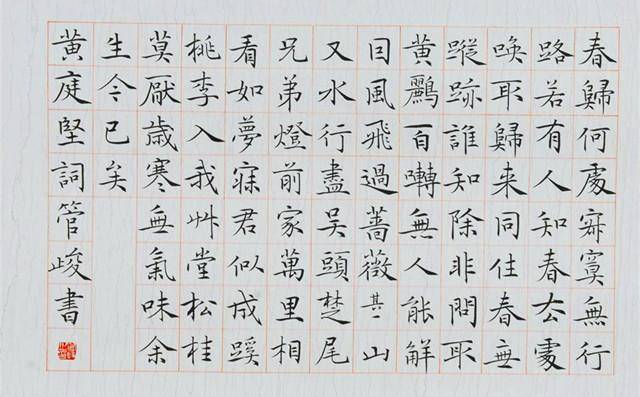 春歸何處寂寞無行
路若有人知春去處
喚取歸来同住春無
蹤跡誰知除非問取
黄鸝百囀無人能解
因風飛過薔薇其二山
又水行盡吳頭楚尾
兄弟燈前家萬里相
看如夢寐君似成蹊
桃李入我艸堂松桂
莫厭歲寒無氣味余
生今已矣
黄庭堅詞管峻書